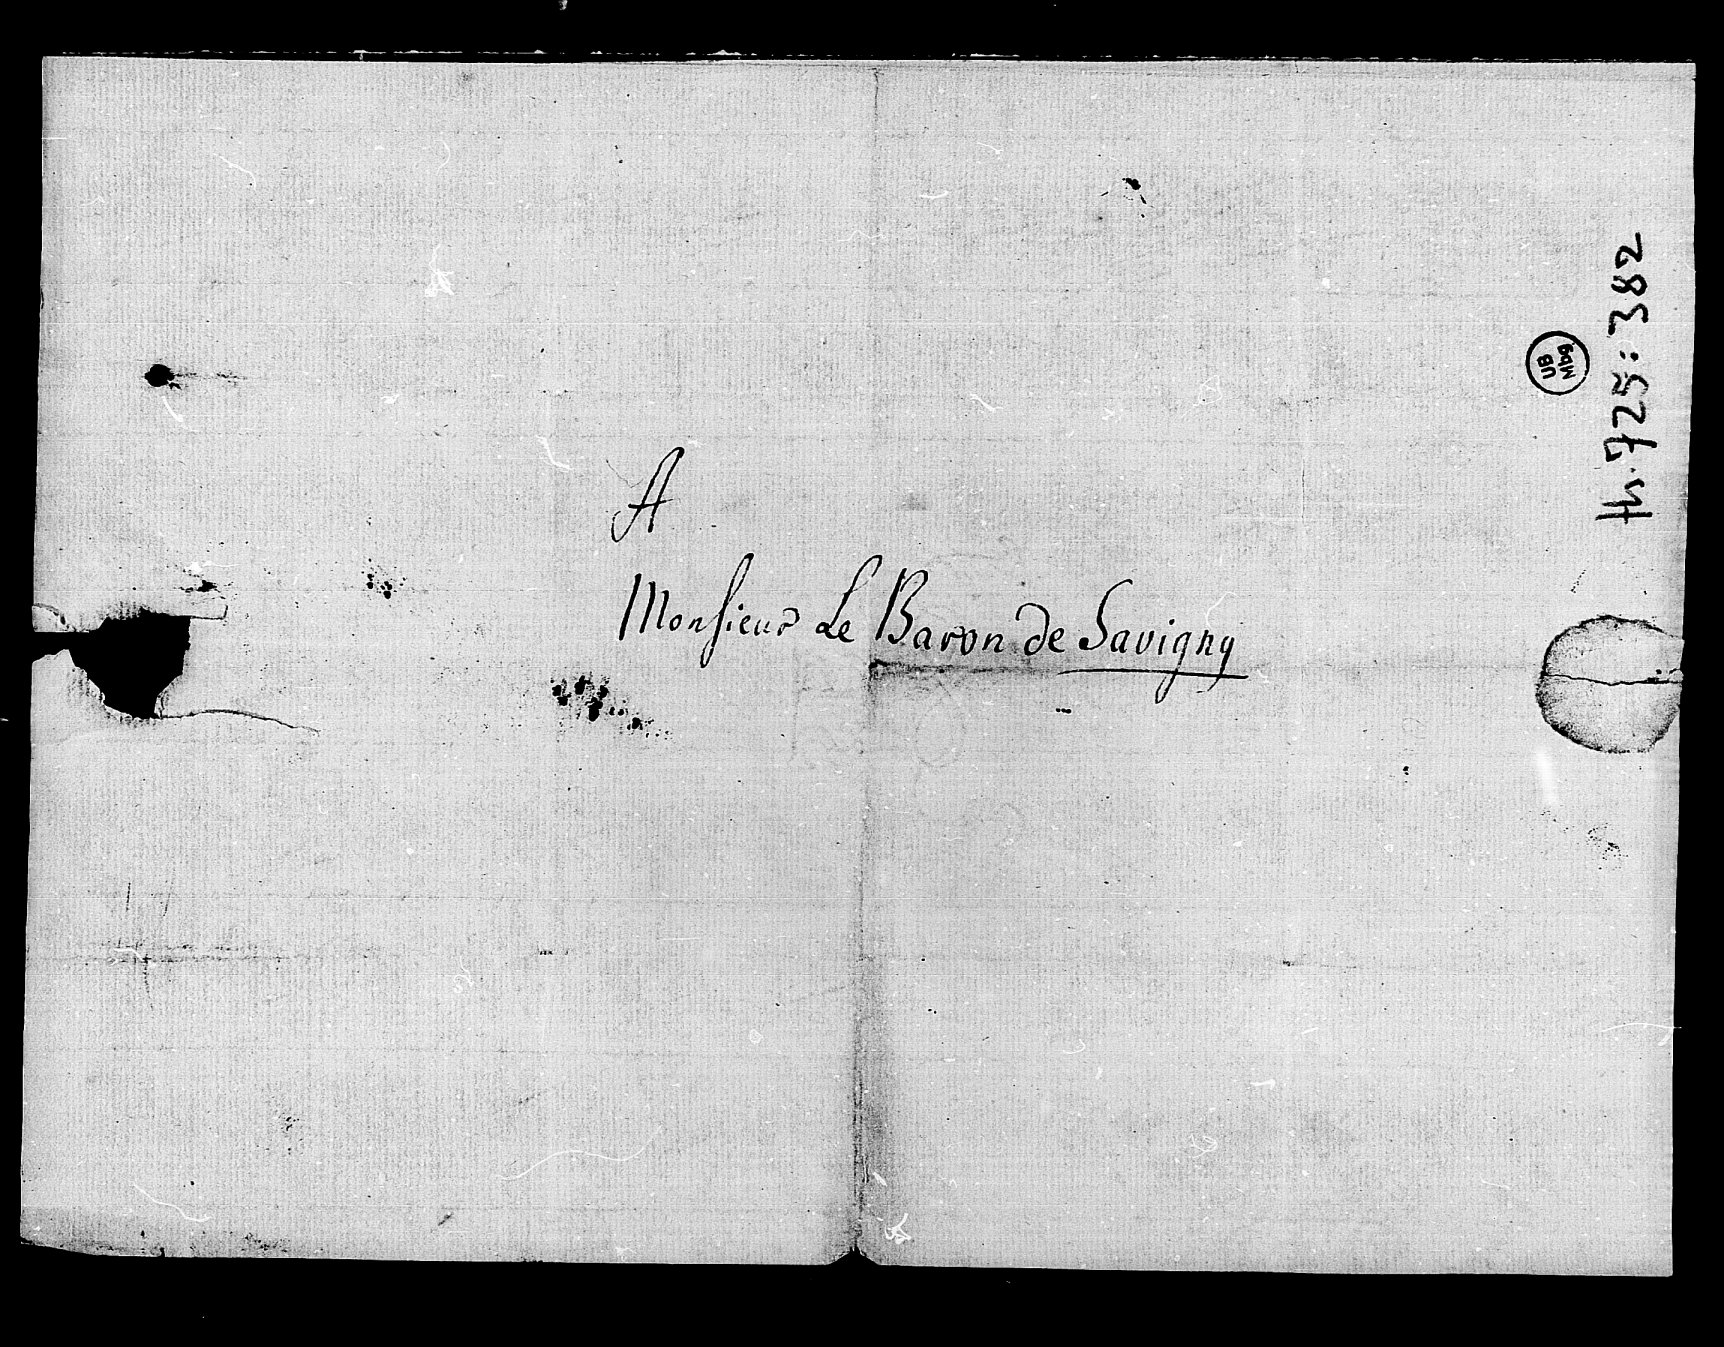 A
Monsieur Le Baron de Savigny
Hs. 725:382
UB
Mbg